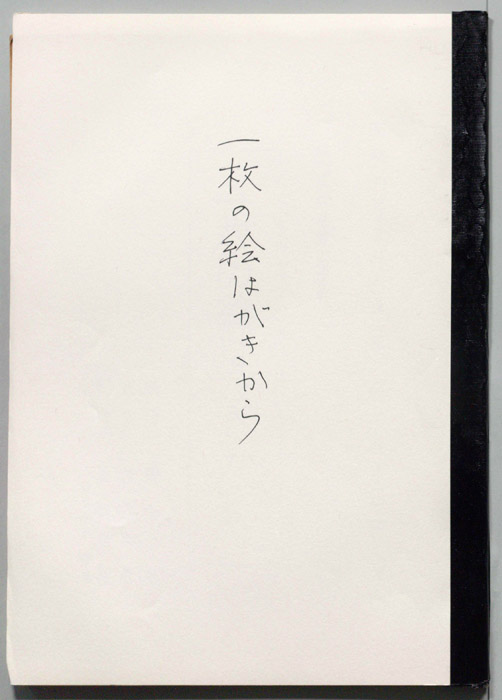 一枚の絵はがきから